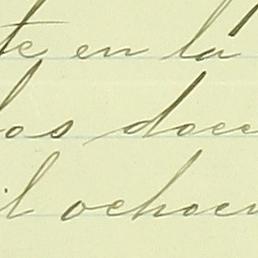 te en la
los doce
il ochocien